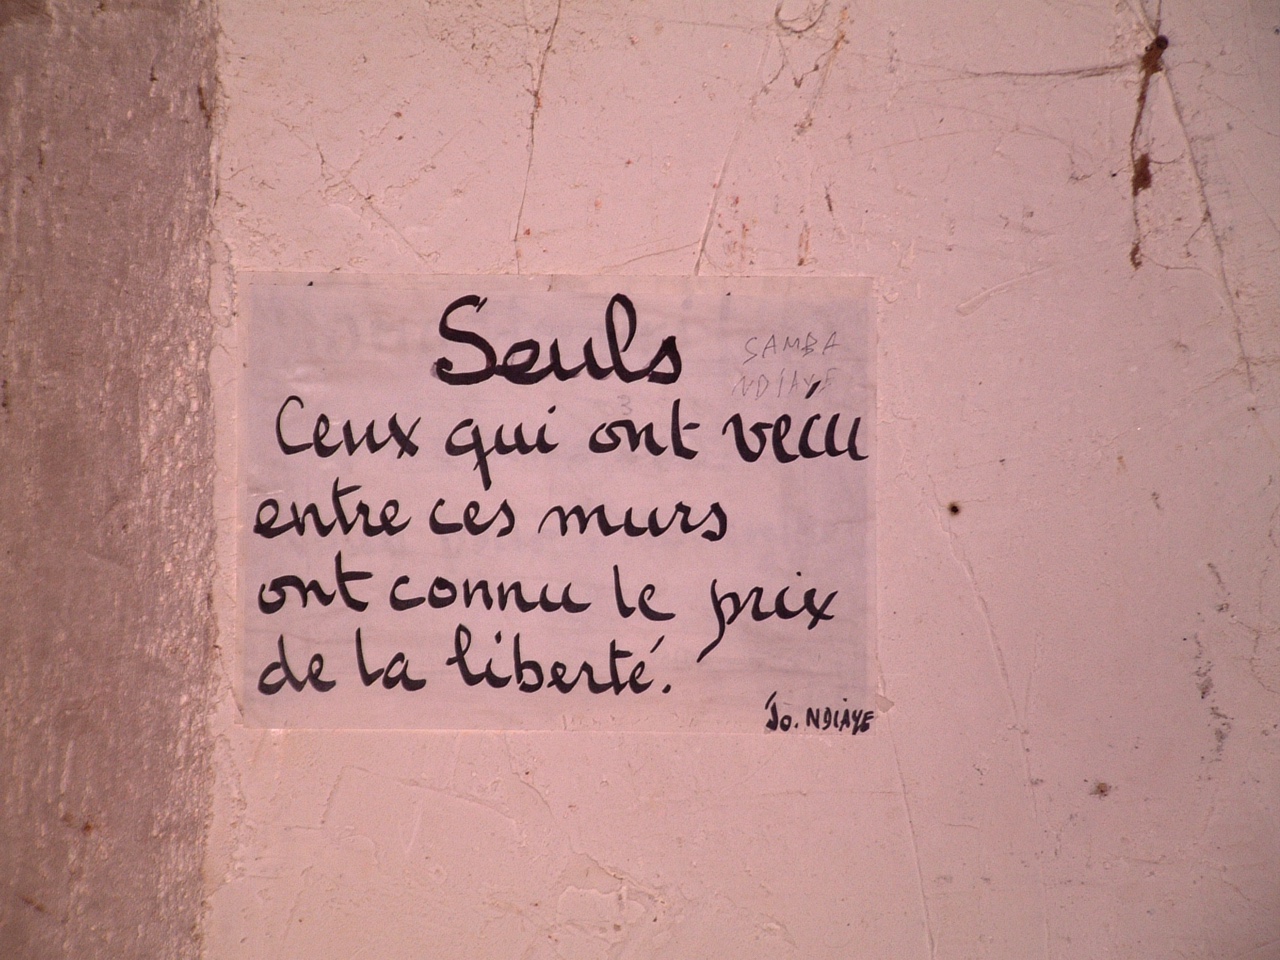 Seuls
SAMBA
NDIAYE
Ceux qui ont vécu
entre ces murs
ont connu le prix
de la liberté.
Jo. NDIAYE